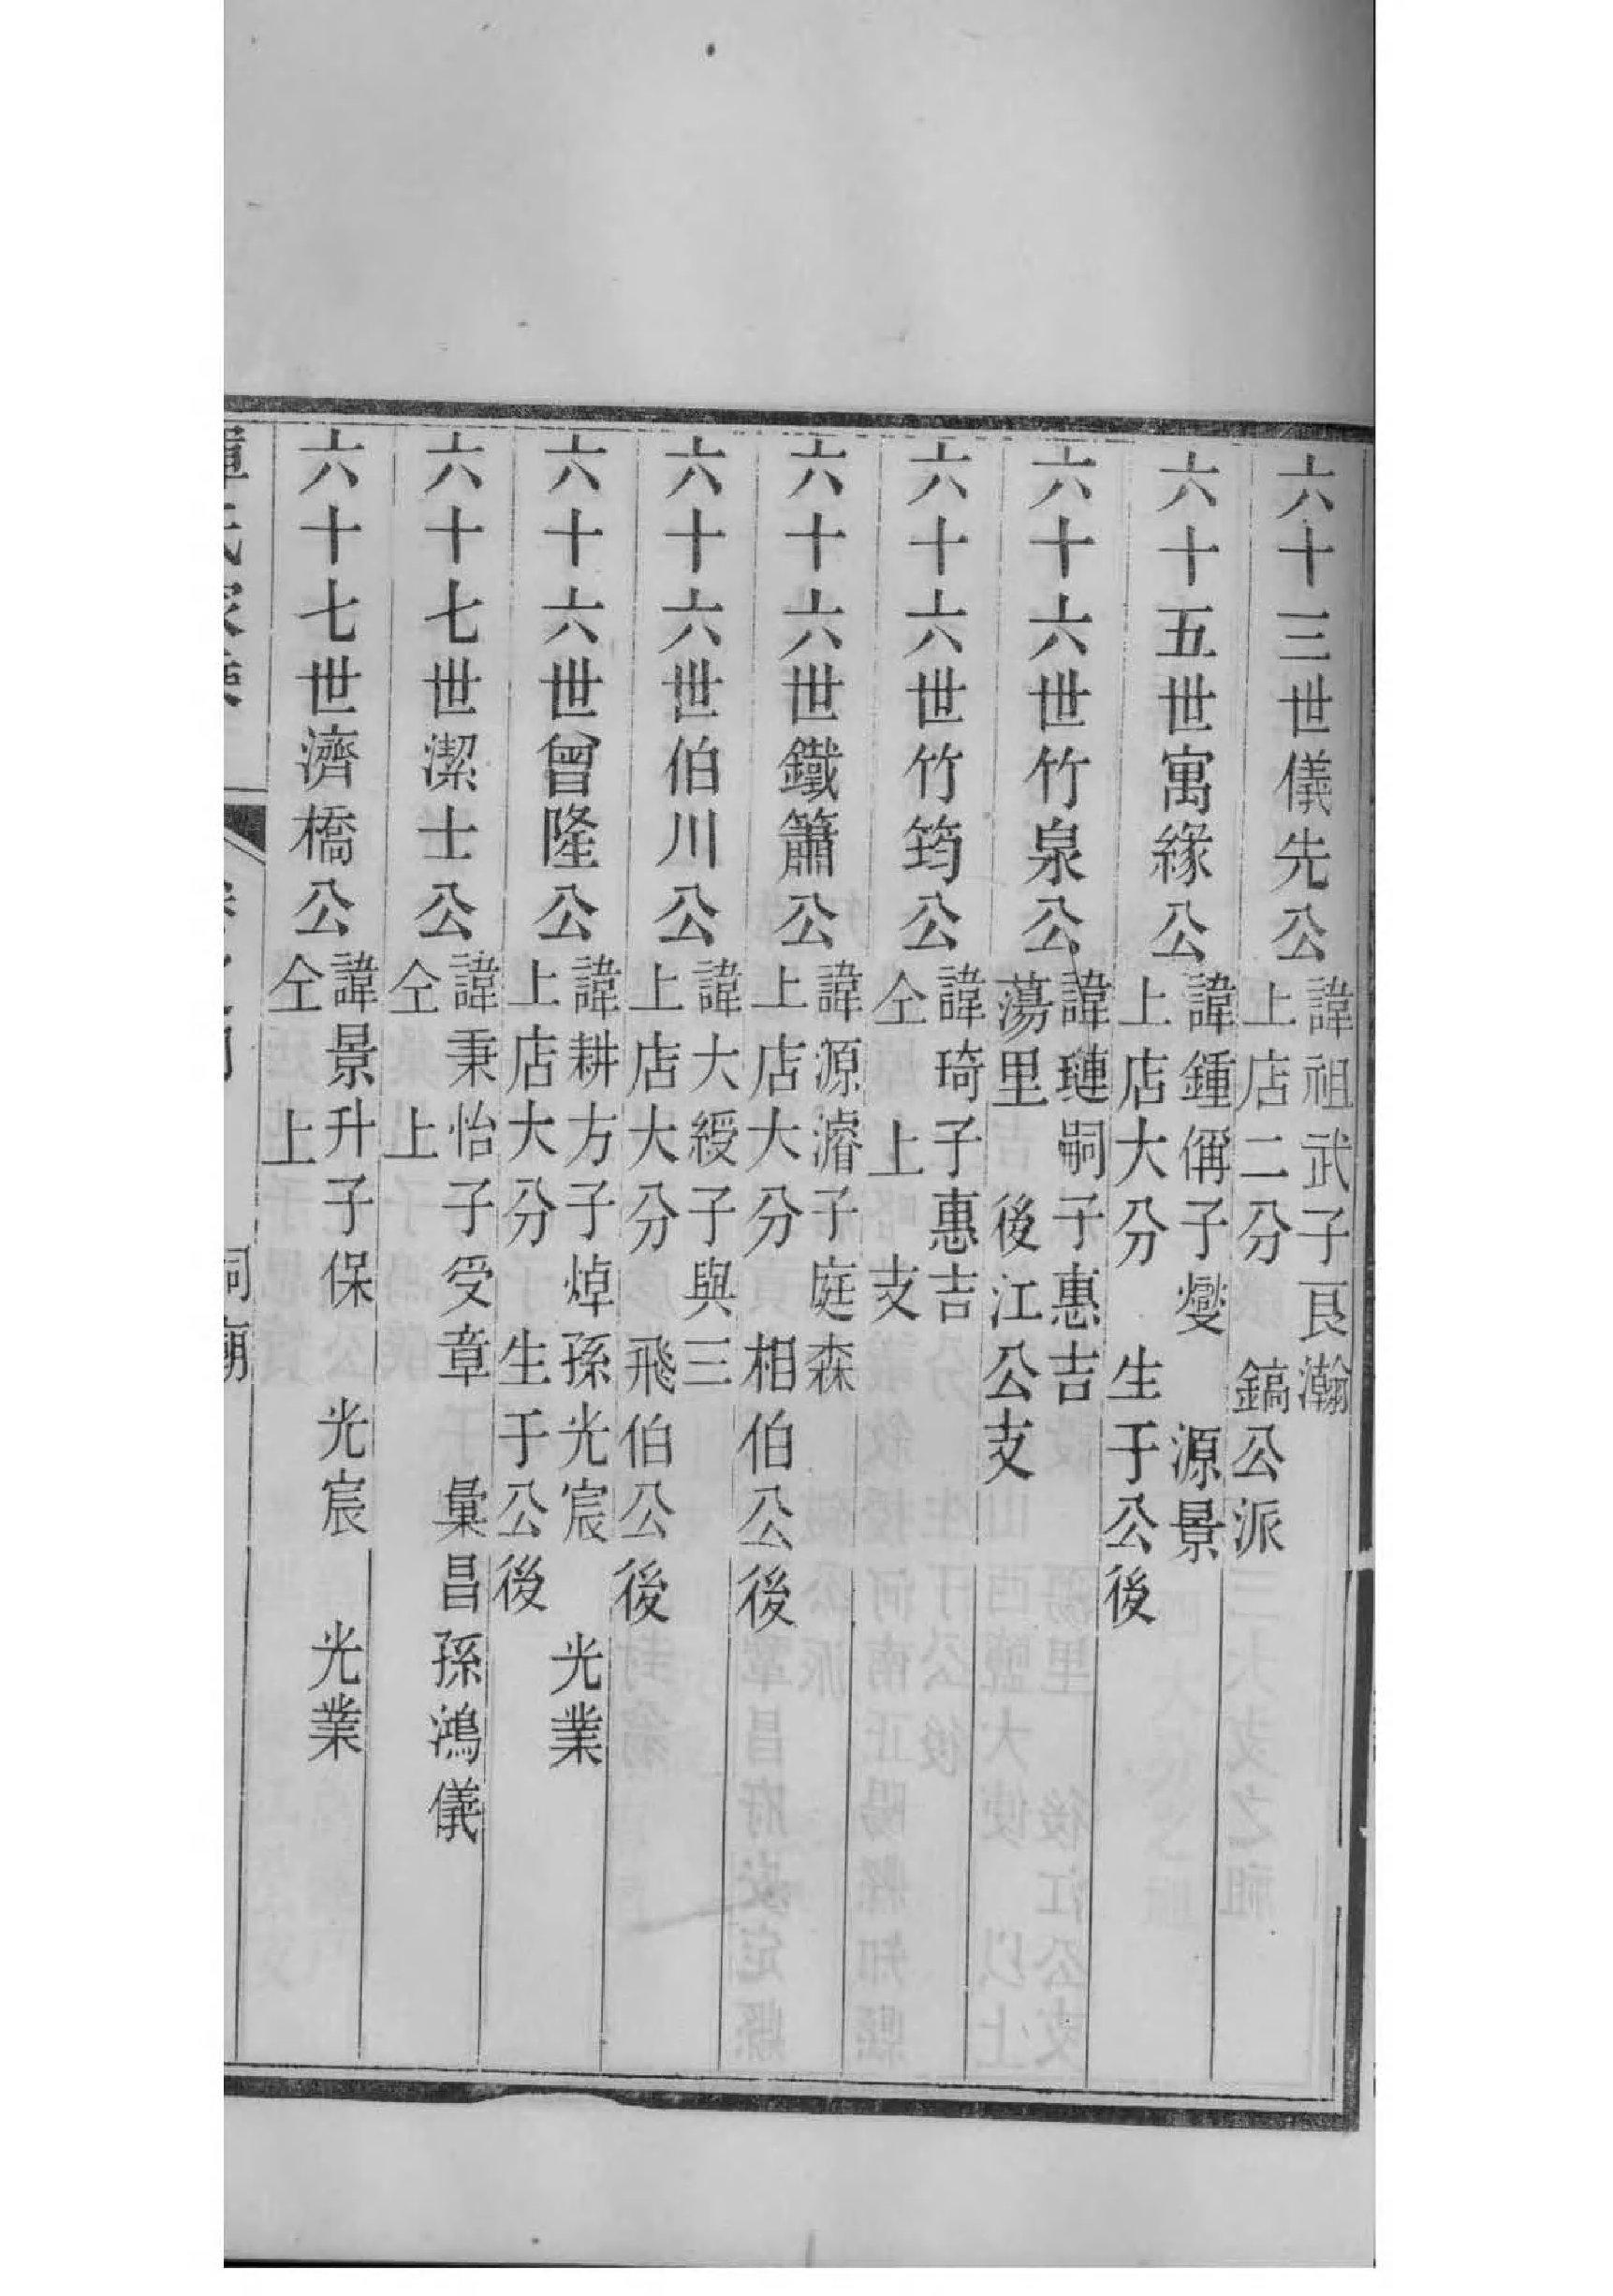 六十三世儀先公
諱祖武子良瀚
上店二分　鎬公派
六十五世寓緣公
諱鍾偁子燮　源景
上店大分　生于公後
六十六世竹泉公
諱璉嗣子惠吉
蕩里　後江公支
六十六世竹筠公
諱琦子惠吉
仝　上　支
六十六世鐵簫公
諱源濬子庭森
上店大分　相伯公後
六十六世伯川公
諱大綬子與三
上店大分　飛伯公後
六十六世曾隆公
諱耕方子焯孫光宸　光業
上店大分　生于公後
六十七世潔士公
諱秉怡子受章　彙昌孫鴻儀
仝　上
六十七世濟橋公
諱景升子保　光宸　光業
仝　上